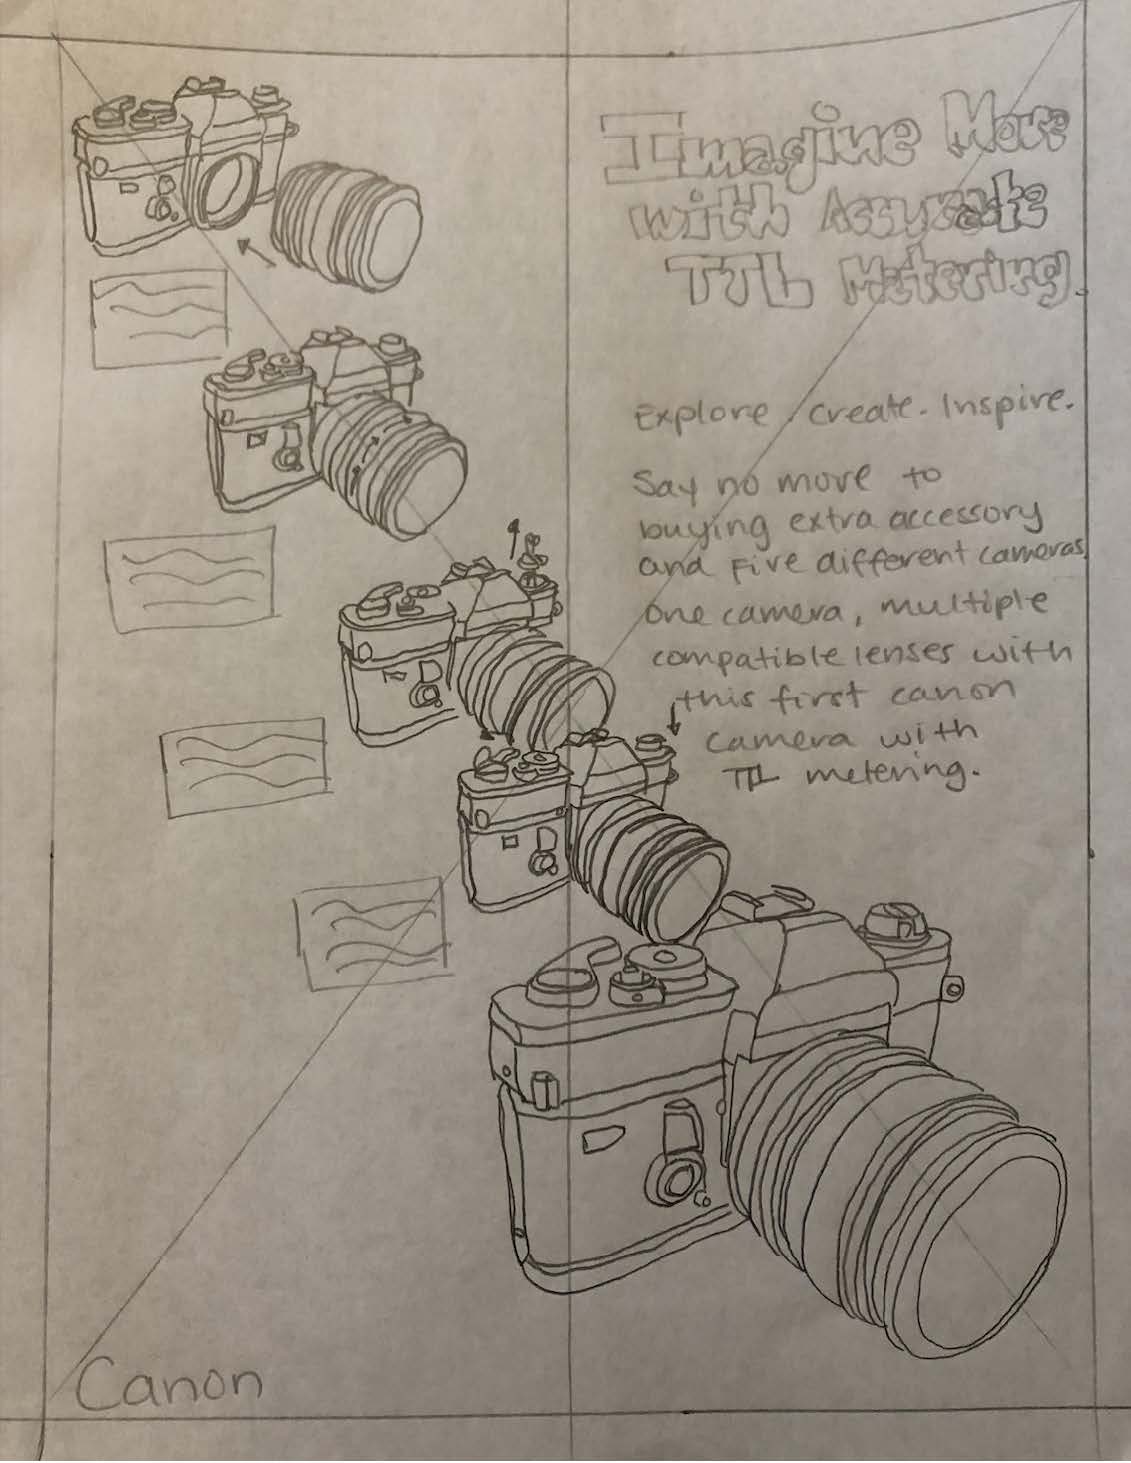 Imagine More
with Accurate
TTL Metering.
Explore. Create. Inspire.
Say no more to
buying extra accessory
and five different cameras.
One camera, multiple
compatible lenses with
this first canon
camera with
TTL metering.
Canon